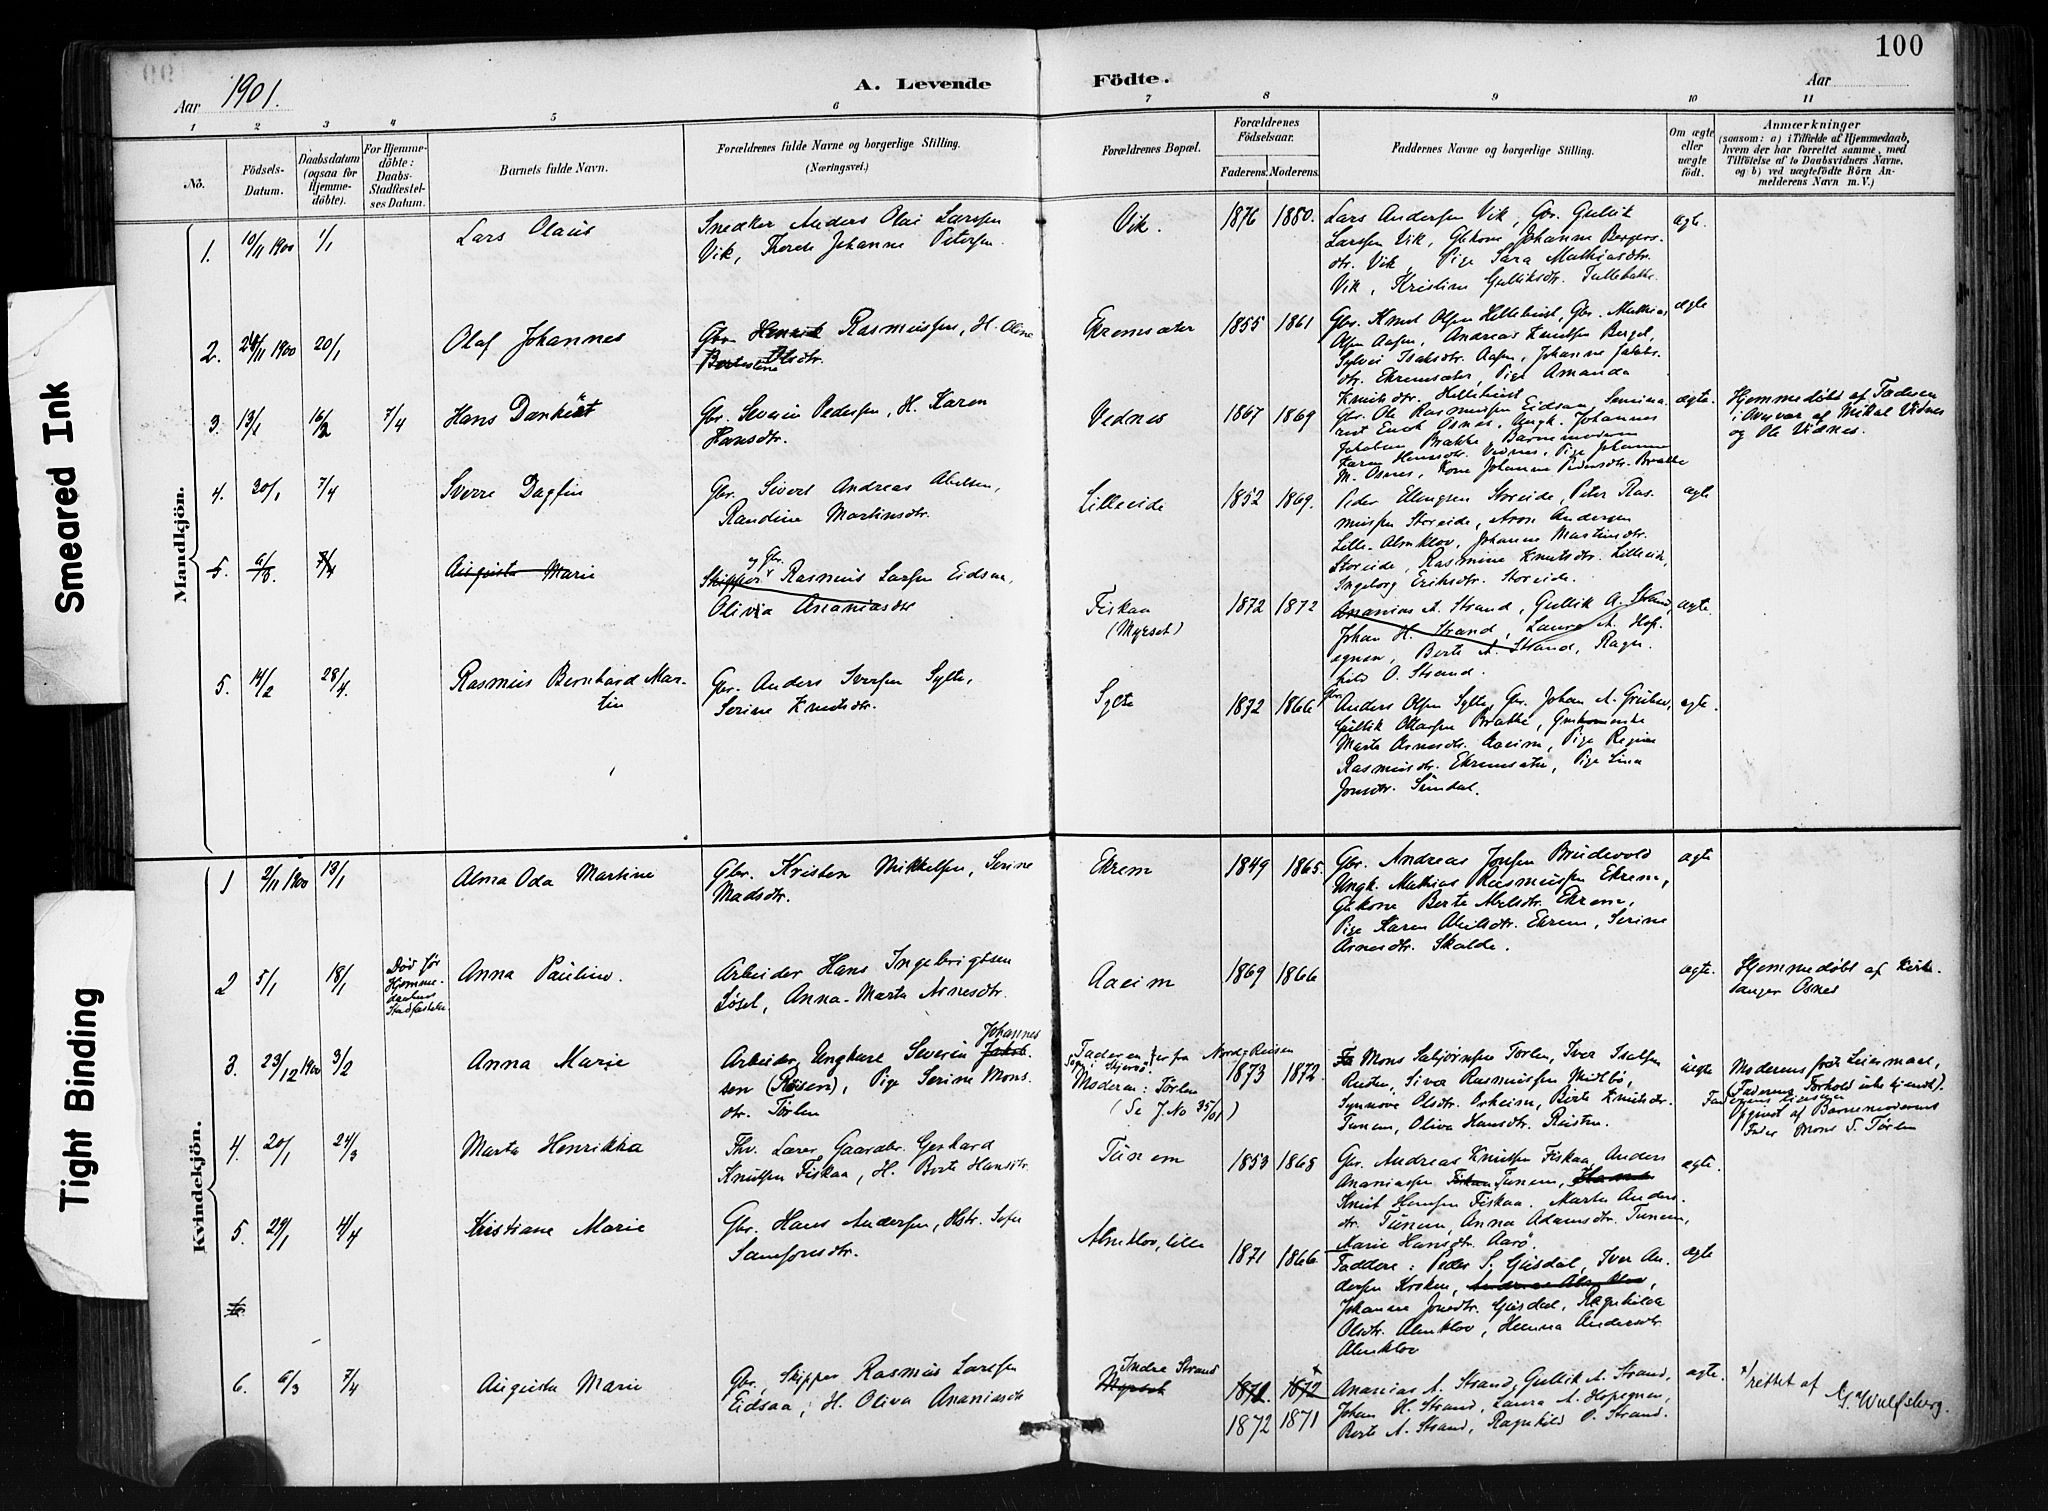 100
Aar 1901.
A. Levende Födte.
Aar
1 2 3 4 5 6 7 8 9 10 11
No.
Födsels-Datum.
Daabsdatum (ogsaa for Hjemmedöbte).
For Hjemmedöbte: Daabs-Stadfæstelses Datum.
Barnets fulde Navn.
Forældrenes fulde Navne og borgerlige Stilling. (Næringsvei.)
Forældrenes Bopæl.
Forældrenes Födselsaar.
Faderens. Moderens.
Faddernes Navne og borgerlige Stilling.
Om ægte eller uægte födt.
Anmærkninger
(saasom: a) i Tilfælde af Hjemmedaab, hvem der har forrettet samme, med Tilföielse af to Daabsvidners Navne. og b) ved uægtefödte Börn Anmelderens Navn m. V.)
Smeared Ink
Tight Binding
Mandkjön.
1. 10/11 1900 1/1
Lars Olaus
Snedker Anders Olai Larssen
Vik, Johanne Petersen
Vik.
1876 1880.
Lars Andersen Vik, Gbr. Gullik
Larssen Vik, Johanne Bergers-
dtr. Vik, Pige Sara Mathiasdtr.
Vik, Kristine Gulliksdtr.
ægte.
2. 1900 20/1
Olaf Johannes
Gbr. Henrik Rasmussen, H. Oline
Olsdtr.
Ekremsæter
1855 1861
Gbr. Knut Olsen Hellebust, Gbr. Mathias
Olsen Aasen, Andreas Knutsen
Isaksdtr. Aasen, Johanne Jakobs-
dtr. Ekremsæter, Pige Amanda
Knutsdtr. Hellebust
ægte
3. 13/1 16/2 7/4
Hans Dankert
Gbr. Severin Pedersen, H. Karen
Hansdtr.
Vednes
1867 1869
Gbr. Ole Rasmussen Eidsaa, Semina-
rist Osnes, Ungk. Johannes
Brakke, Barnemoderen
Karen Hansdtr. Vednes, Pige Johanne
M. Osnes, Kone Johanne Pedersdtr. Brakke
ægte.
Hjemmedöbt af Faderen
af Mikal Vidnes
og Ole Vidnes.
4. 30/1 7/4
Sverre Dagfin
Gbr. Sivert Andreas Abelsen,
Randine Martinsdtr.
Lilleeide
1852 1869.
Peder Ellingsen Storeide, Peter Ras-
mussen Storeide, Aron Andersen
Lille-Almklov, Johanne Martinsdtr.
Storeide, Rasmine Knutsdtr. Lilleeide,
Ingeborg Eriksdtr. Storeide.
ægte
5. 6/3 7/4
Augusta Marie
og Gbr.
Skipper Rasmus Larsen Eidsaa,
Olivia Ananiasdtr
Fiskaa
(Myrset)
1872 1872
Ananias A. Strand, Gullik A. Strand,
Johan H. Strand, Laura A. Hop-
egnen, Berte A. Strand, Ragn-
hild O. Strand.
ægte.
5. 14/2 28/4
Rasmus Bernhard Mar-
tin
Gbr. Anders Iversen Sylte,
Serine Knutsdtr.
Sylte
1872 1866
Gbr. Anders Olsen Sylte, Gbr. Johan A.
Gullik Brakke,
Marte Arnesdtr. Aaeim, Pige Regine
Rasmusdtr. Ekremsæter, Pige Lina
Jonsdtr. Sundal.
ægte.
Kvindekjön.
1 2/11 1900 13/1
Alma Oda Martine
Gbr. Kristen Mikkelsen, Serine
Madsdtr.
Ekrem
1849 1865.
Gbr. Andreas Jonsen Brudevold
Ungk. Mathias Rasmussen Ekrem,
Gbkone Berte Abelsdtr. Ekrem,
Pige Karen Ekrem, Serine
Arnesdtr. Skolde.
ægte
2 5/1 18/1
Död för
Hjemme-
daabens
Stadfæstelse
Anna Pauline.
Arbeider Hans Ingebrigtsen
Anna-Marta Arnesdtr.
Aaeim
1869 1866
ægte.
Hjemmedöbt af Kirke-
sanger Osnes
3. 23/12 1900 3/2
Anna Marie
Arbeider, Ungkarl Severin Johannes-
sen (Röisen), Pige Serine Mons-
dtr. Törlen
Faderen er fra Nord-Reisen
Moderen: Törlen
(Se J. No 35/01)
1873 1872.
Mons Törlen, Iver
Reiten, Rasmussen Midtbö,
Synnöve Olsdtr. Orheim, Berte Knutsdtr.
Tunem, Oliva Hansdtr. Reiten.
uægte
Moderens Leiermaal,
(Faderens Forhold ikke kjendt).
Opgivet af Barnemoderens
Fader Mons S. Törlen
4. 20/1 24/3
Marta Henrikka
Fhv. Lærer Gaardbr. Gerhard
Knutsen Fiskaa, H. Berte Hansdtr.
Tunem
1853 1865
Gbr. Andreas Knutsen Fiskaa, Anders
Ananiassen Tunem,
Knut Hansen Fiskaa. Marta Anders-
dtr. Tunem, Anna Adamsdtr. Tunem,
Marie Hansdtr. Aarö.
ægte.
5. 29/1 4/4
Kristiane Marie
Gbr. Hans Andersen, Hstr. Sofie
Samsonsdtr.
Almklov, lille
1871 1866.
Faddere: Peder S. Gusdal, Iver An-
dersen Kroken,
Johanne Jonsdtr. Gusdal, Ragnhilda
Olsdtr. Almklov, Hanna Andersdtr.
Almklov
ægte
6. 6/3 7/4
Augusta Marie
Gbr, Skipper Rasmus Larssen
Eidsaa, H. Oliva Ananiasdtr
Indre Strand
Myrset
1872. 1872
1872 1871
Ananias A. Strand, Gullik A. Strand,
Johan H. Strand, Laura A. Hopegnen,
Berte A. Strand, Ragnhild O. Strand.
ægte.
x/ rettet af
G. Wulfsberg.